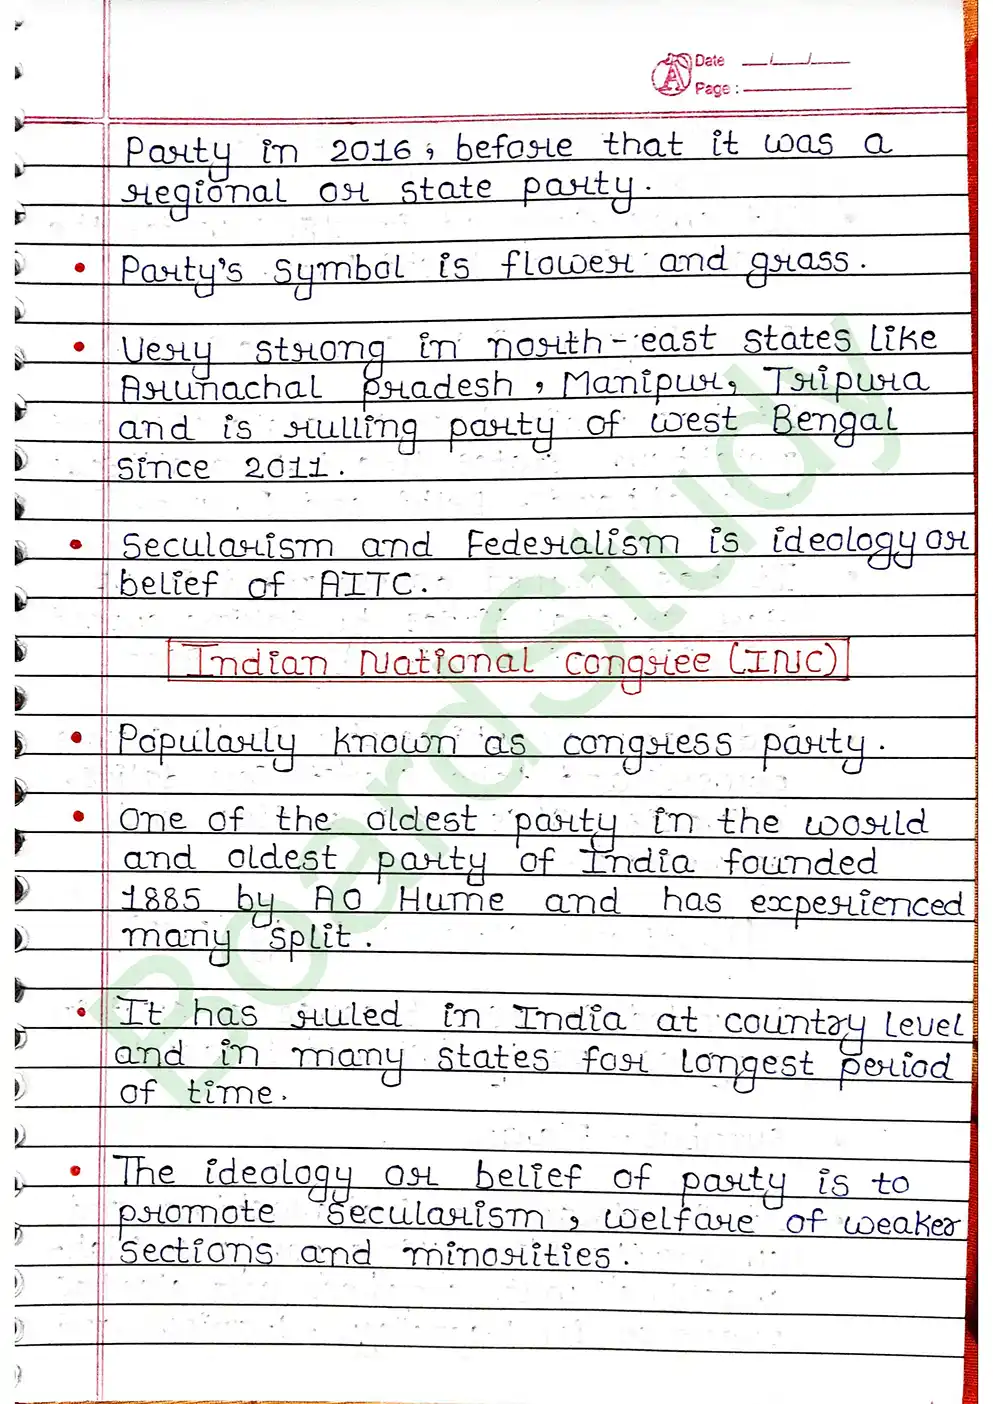 Date __/__/__
Page : ______
Party in 2016, before that it was a
regional or state party.
• Party's symbol is flower and grass.
• Very strong in north-east states like
Arunachal pradesh, Manipur, Tripura
and is rulling party of west Bengal
since 2011.
• Secularism and Federalism is ideology or
belief of AITC.
Indian National Congree (INC)
• Popularly known as congress party.
• One of the oldest party in the world
and oldest party of India founded
1885 by AO Hume and has experienced
many split.
• It has ruled in India at country level
and in many states for longest period
of time.
• The ideology or belief of party is to
promote secularism, welfare of weaker
sections and minorities.
BoardStudy